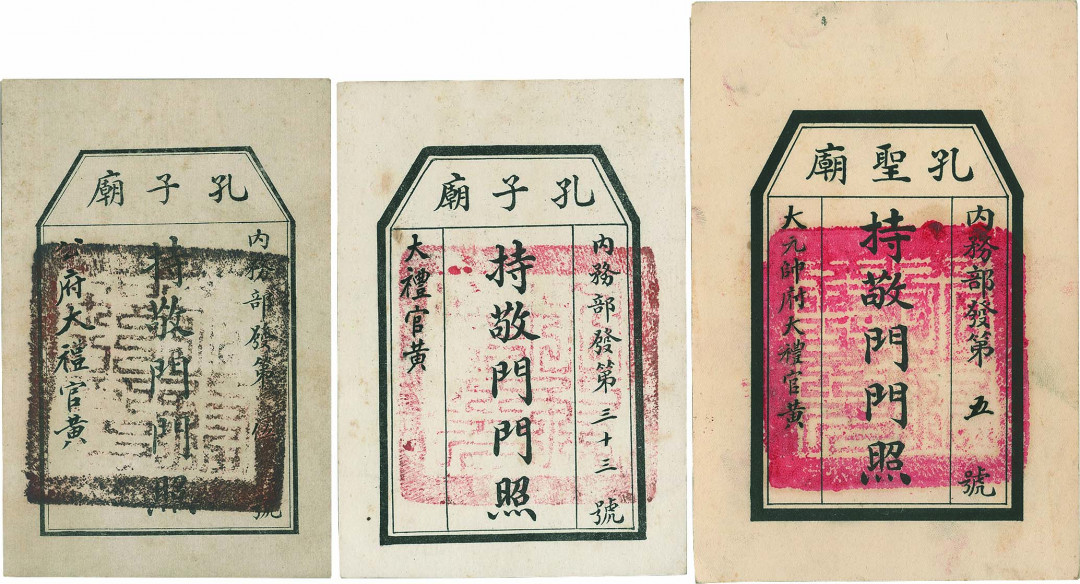 孔子廟
內務部發第 號
持敬門門照
府大禮官黃
孔子廟
內務部發第三十三號
持敬門門照
大禮官黃
孔聖廟
內務部發第五號
持敬門門照
大元帥府大禮官黃